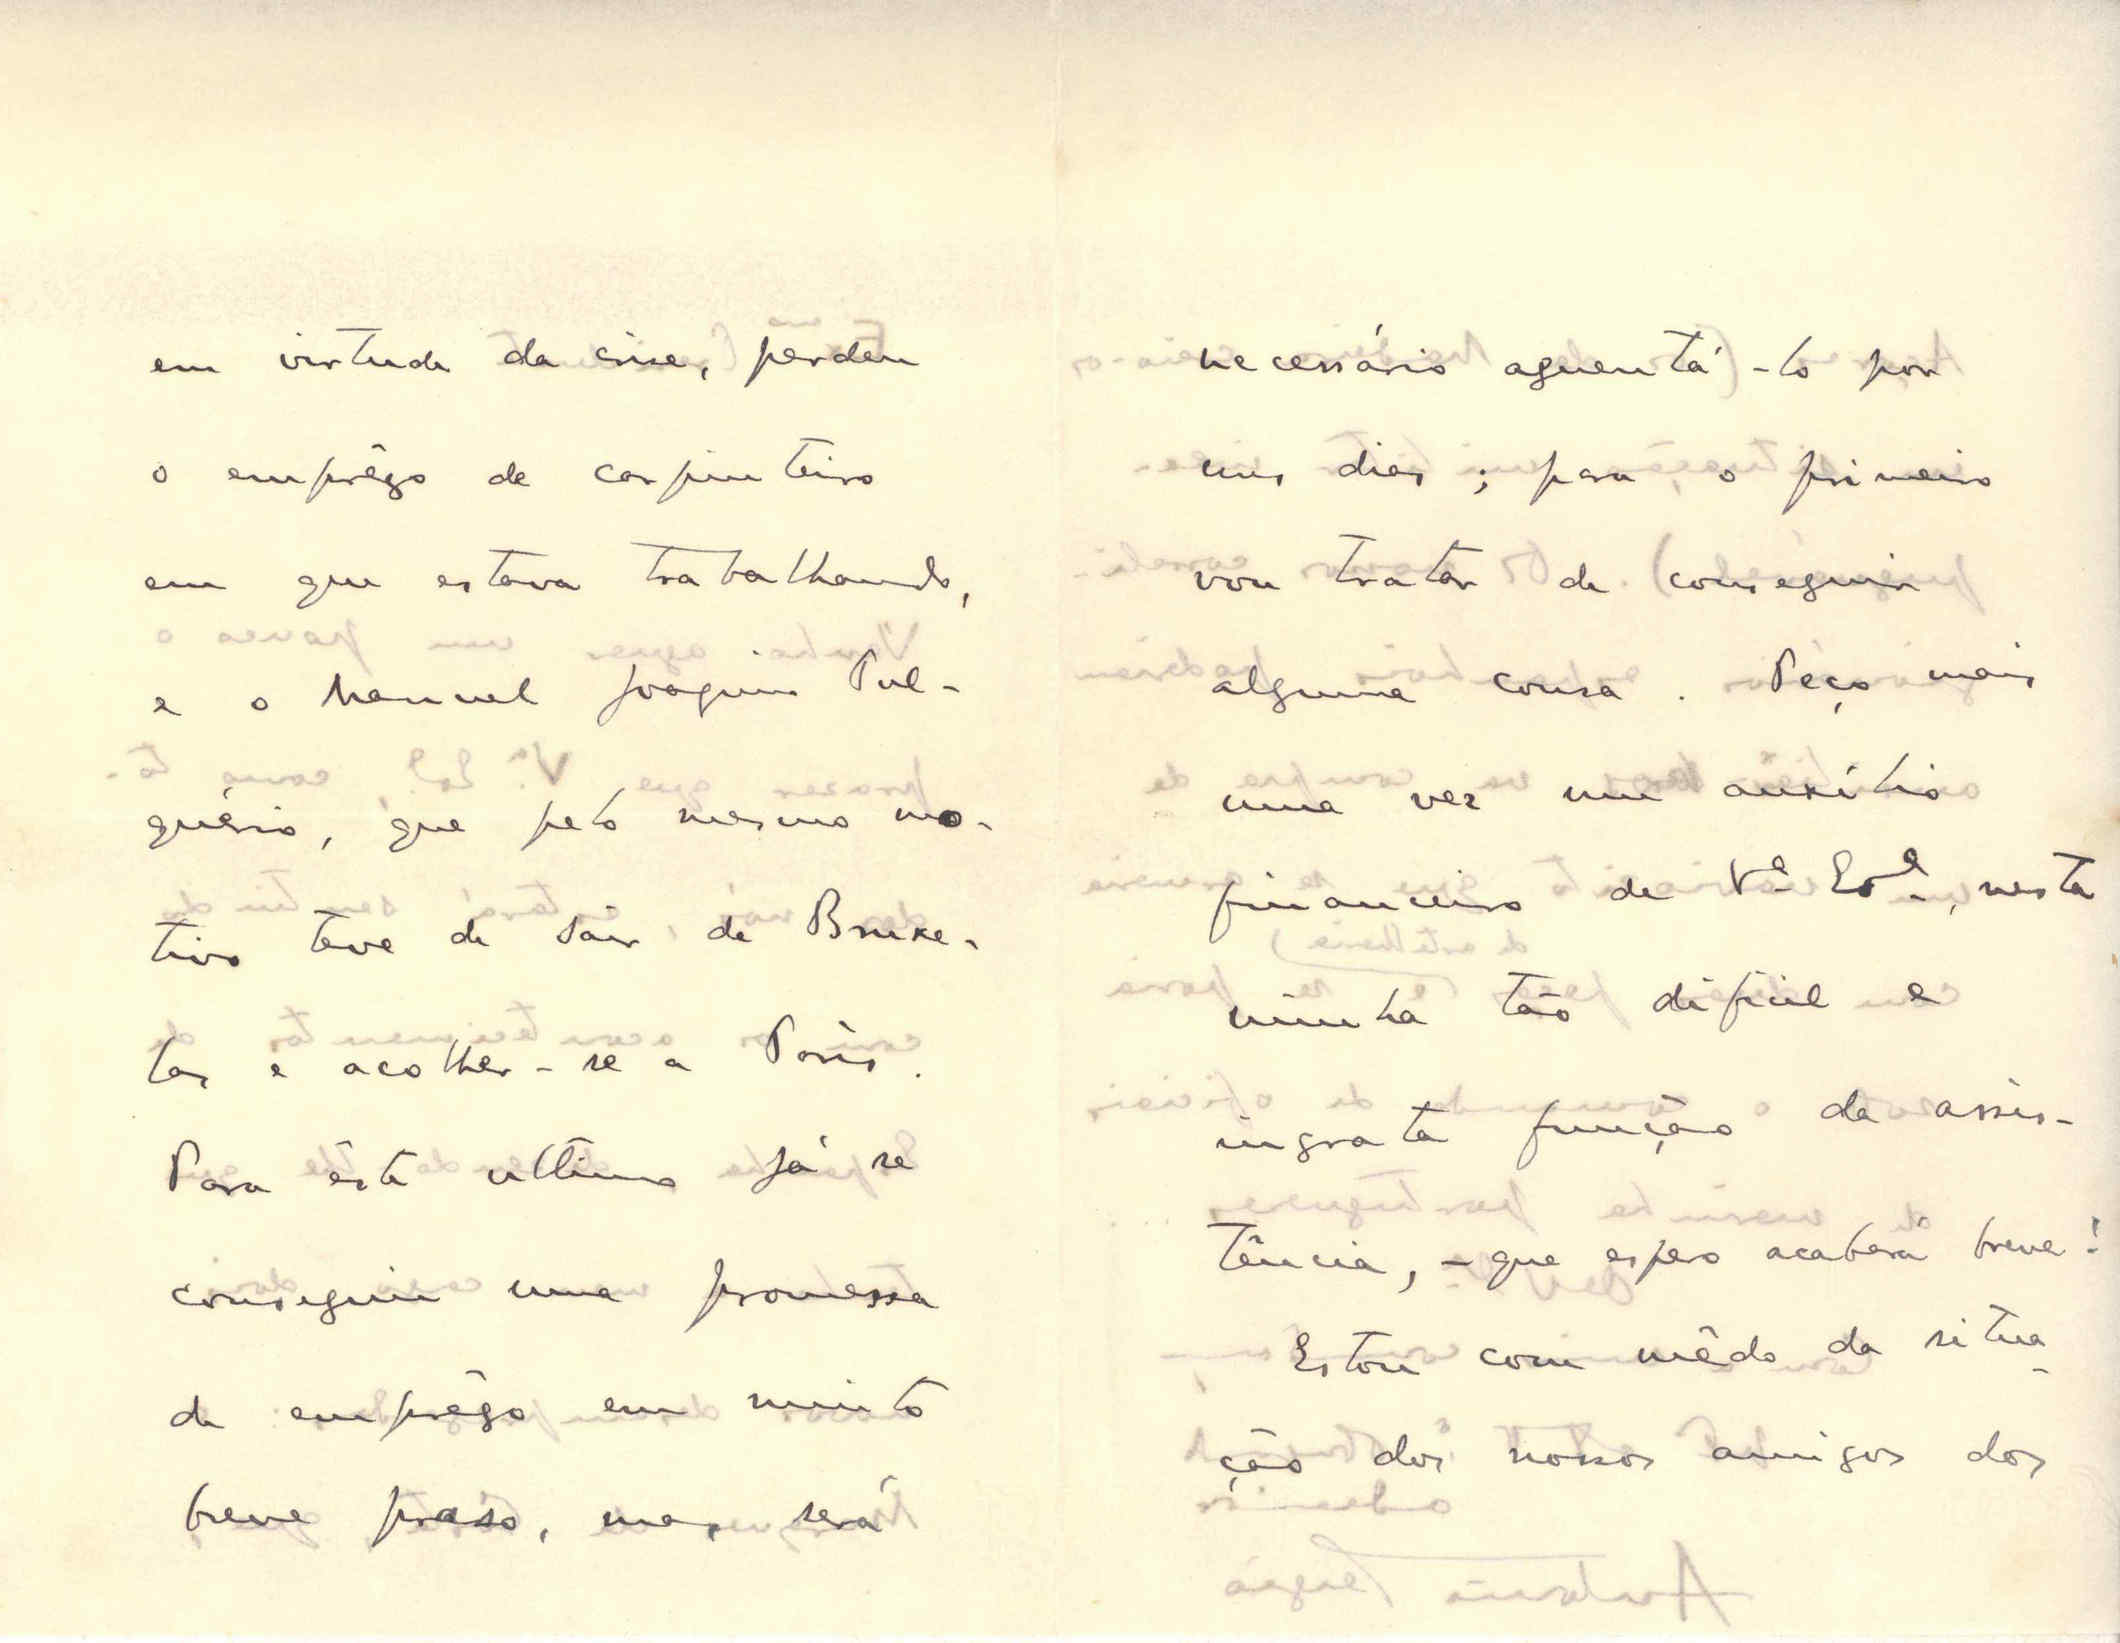 em virtude da crise, perdeu
o emprêgo de carpinteiro
em que estava trabalhando,
e o Manuel Joaquim Pul-
quério, que pelo mesmo mo-
tivo teve de sair de Bruxe-
las e acolher-se a Paris.
Para êste ultimo já se
conseguiu uma promessa
de emprêgo em muito
breve praso, mas será
necessário aguentá-lo por
uns dias; para o primeiro
vou tratar de conseguir
alguma cousa. Peço mais
uma vez um auxílio
financeiro de Vª Exª, nesta
minha tão difícil e
ingrata função de assis-
tência, - que espero acabará breve!
Estou com mêdo da situa-
ção dos nossos amigos dos